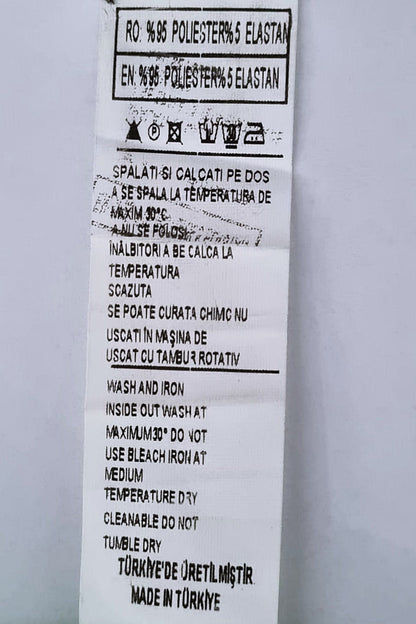 RO: %95 POLIESTER%5 ELASTAN
EN: %95 POLIESTER%5 ELASTAN
SPALATI SI CALCATI PE DOS
A SE SPALA LA TEMPERATURA DE
MAXIM 30°C
A NU SE FOLOSI
ÎNĂLBITORI A BE CALCA LA
TEMPERATURA
SCAZUTA
SE POATE CURATA CHIMIC NU
USCATI ÎN MAŞINA DE
USCAT CU TAMBUR ROTATIV
WASH AND IRON
INSIDE OUT WASH AT
MAXIMUM30° DO NOT
USE BLEACH IRON AT
MEDIUM
TEMPERATURE DRY
CLEANABLE DO NOT
TUMBLE DRY
TÜRKİYE'DE ÜRETİLMİŞTİR
MADE IN TÜRKİYE